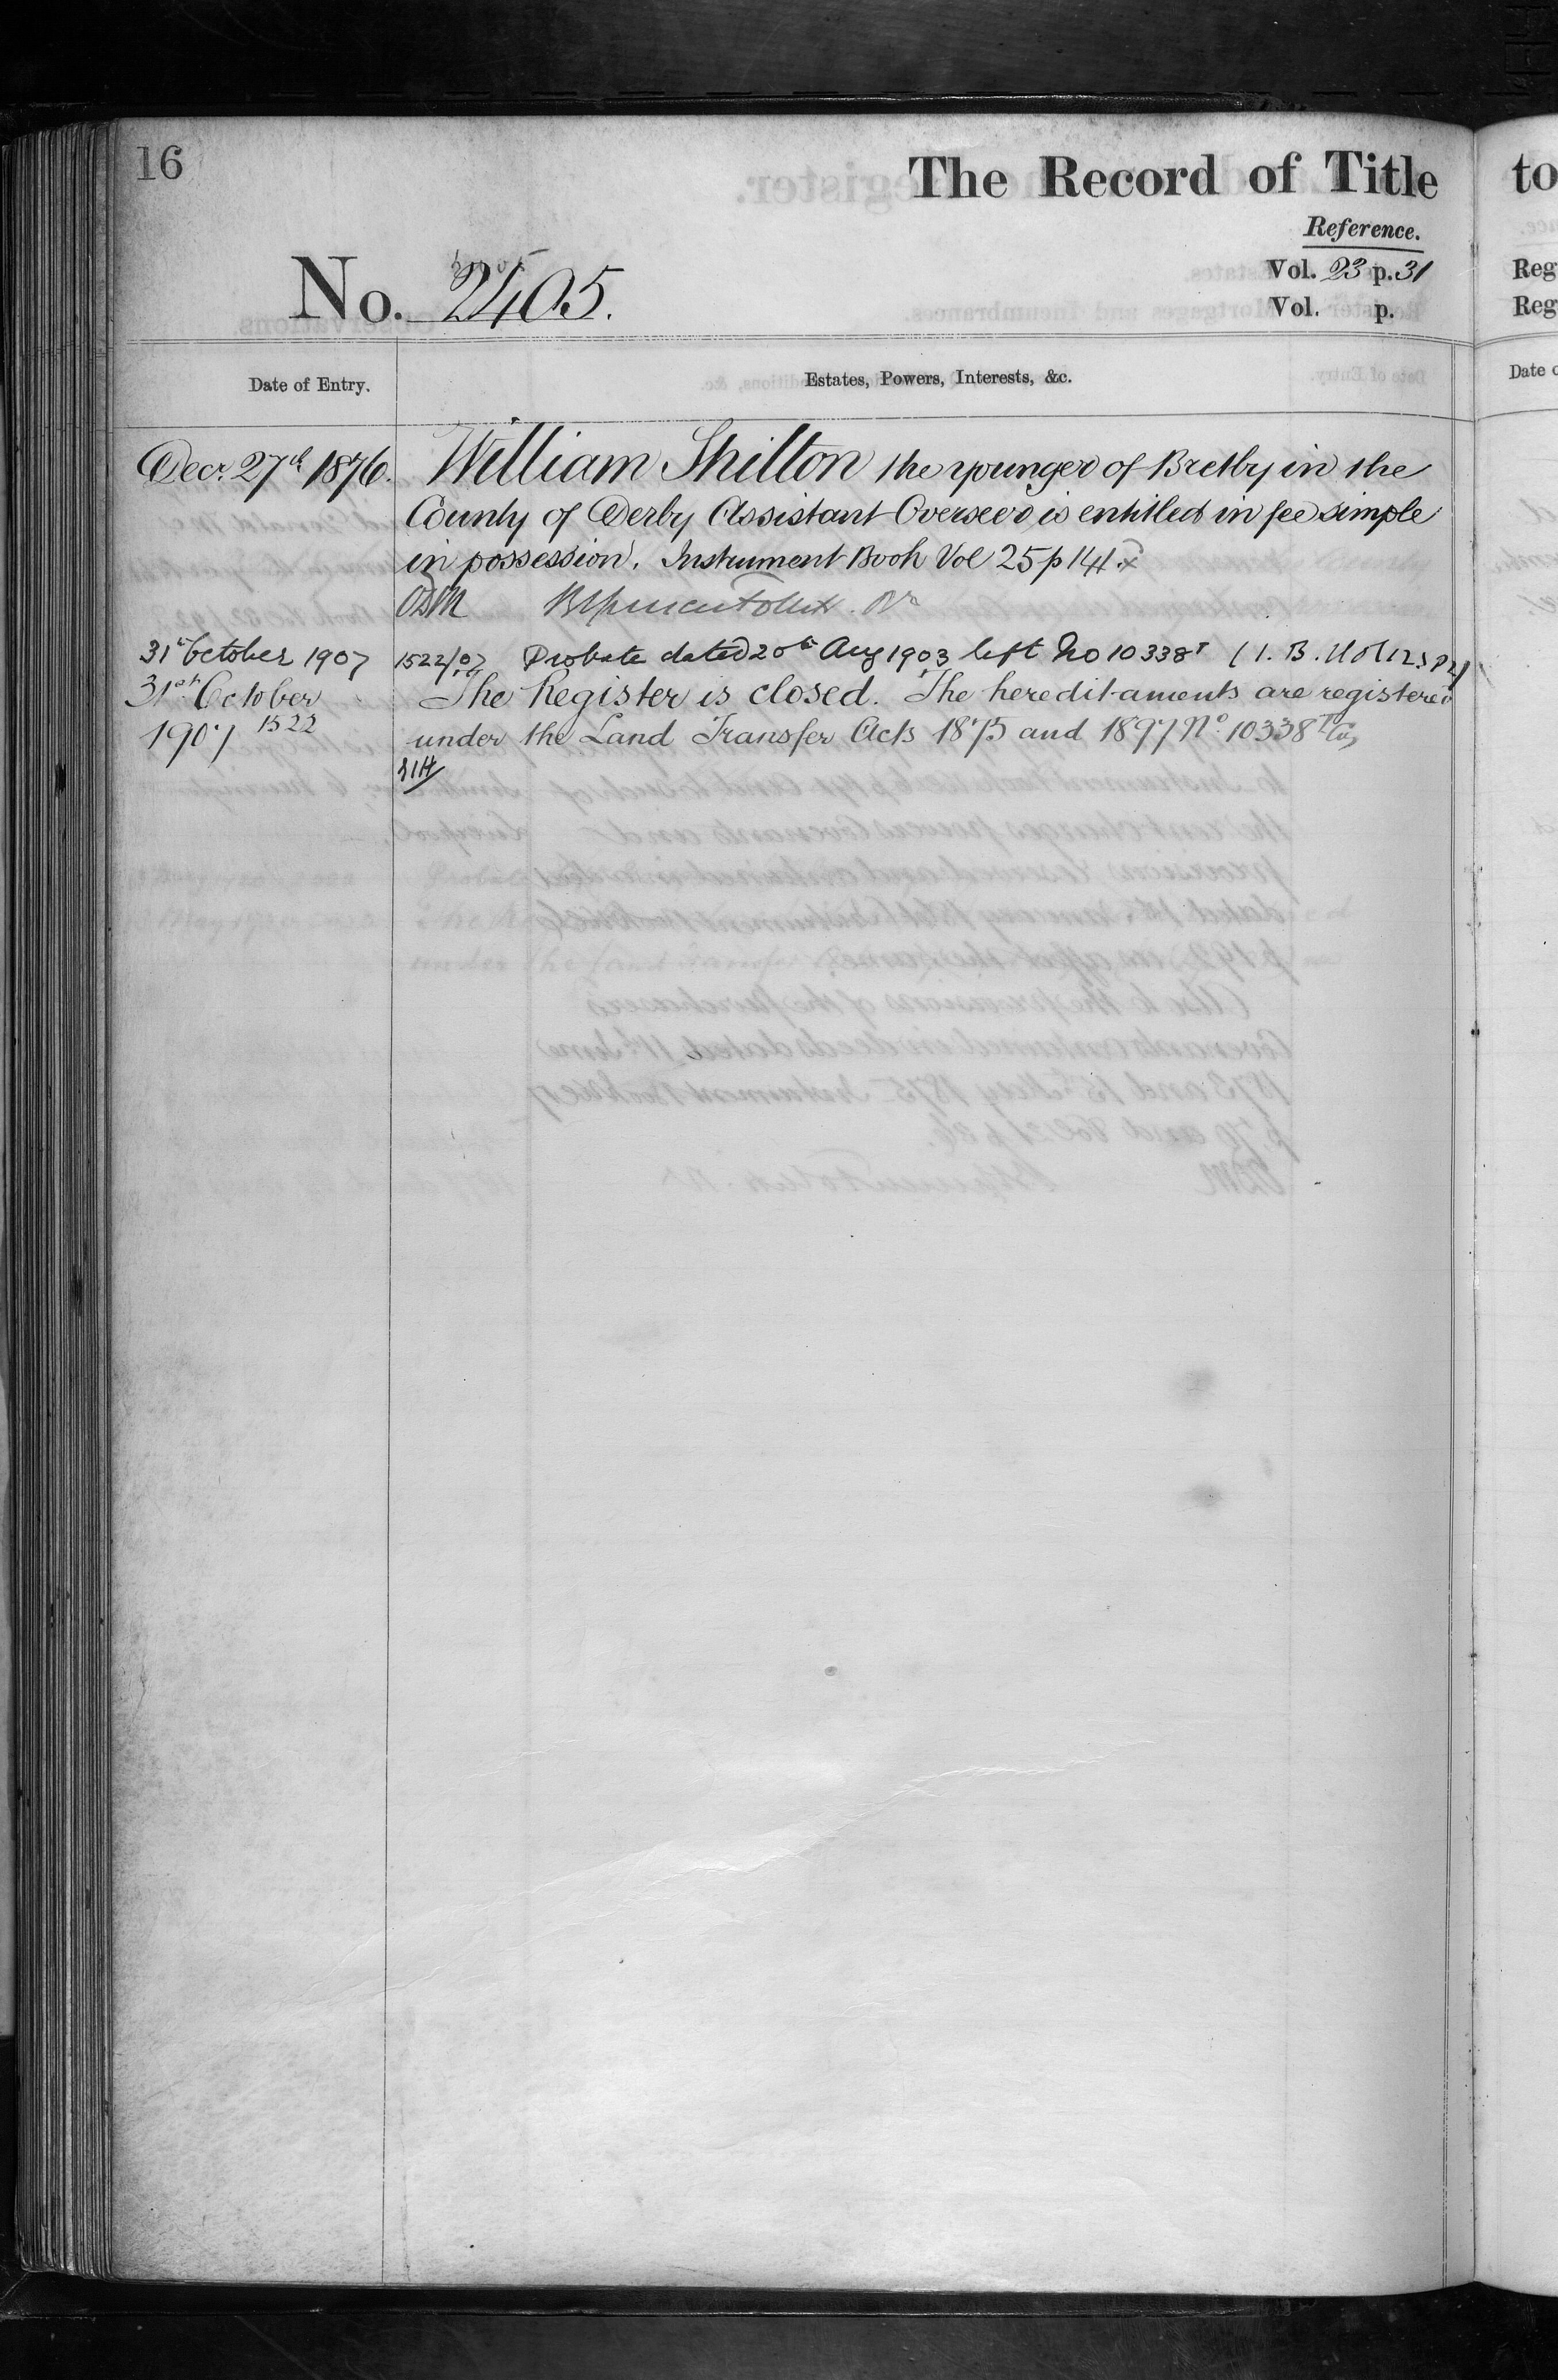 16
The Record of Title
Reference.
No. 2405.
Vol. 23 p. 31
Vol. p.
Date of Entry.
Estates, Powers, Interests, &c.
Decr. 27th 1876. William Shilton the younger of Bretby in the
County of Derby Assistant Overseer is entitled in fee simple
in possession. Instrument Book Vol 25 p 141
31st October 1907 1522/07 Probate dated 20th Aug 1903 left No 10338 (I. B. Vol 125 p
31st October The Register is closed. The hereditaments are registered
1907 1522 under the Land Transfer Acts 1875 and 1897 No. 10338
to
Reg
Reg
Date o